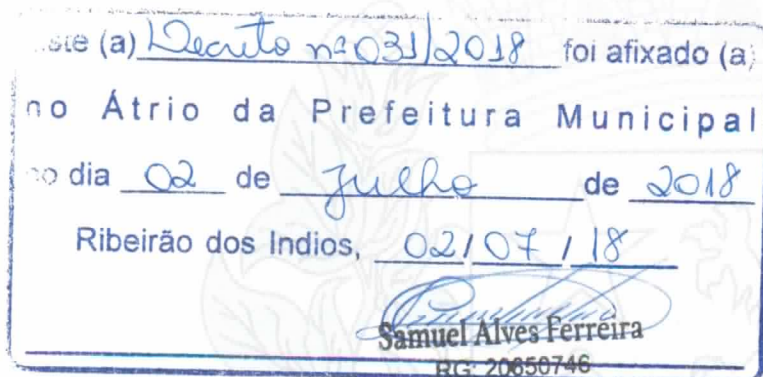 ste (a) Decreto nº 031/2018 foi afixado (a)
no Átrio da Prefeitura Municipal
no dia 02 de Julho de 2018
Ribeirão dos Indios, 02/07/18
Samuel Alves Ferreira
RG: 20650746